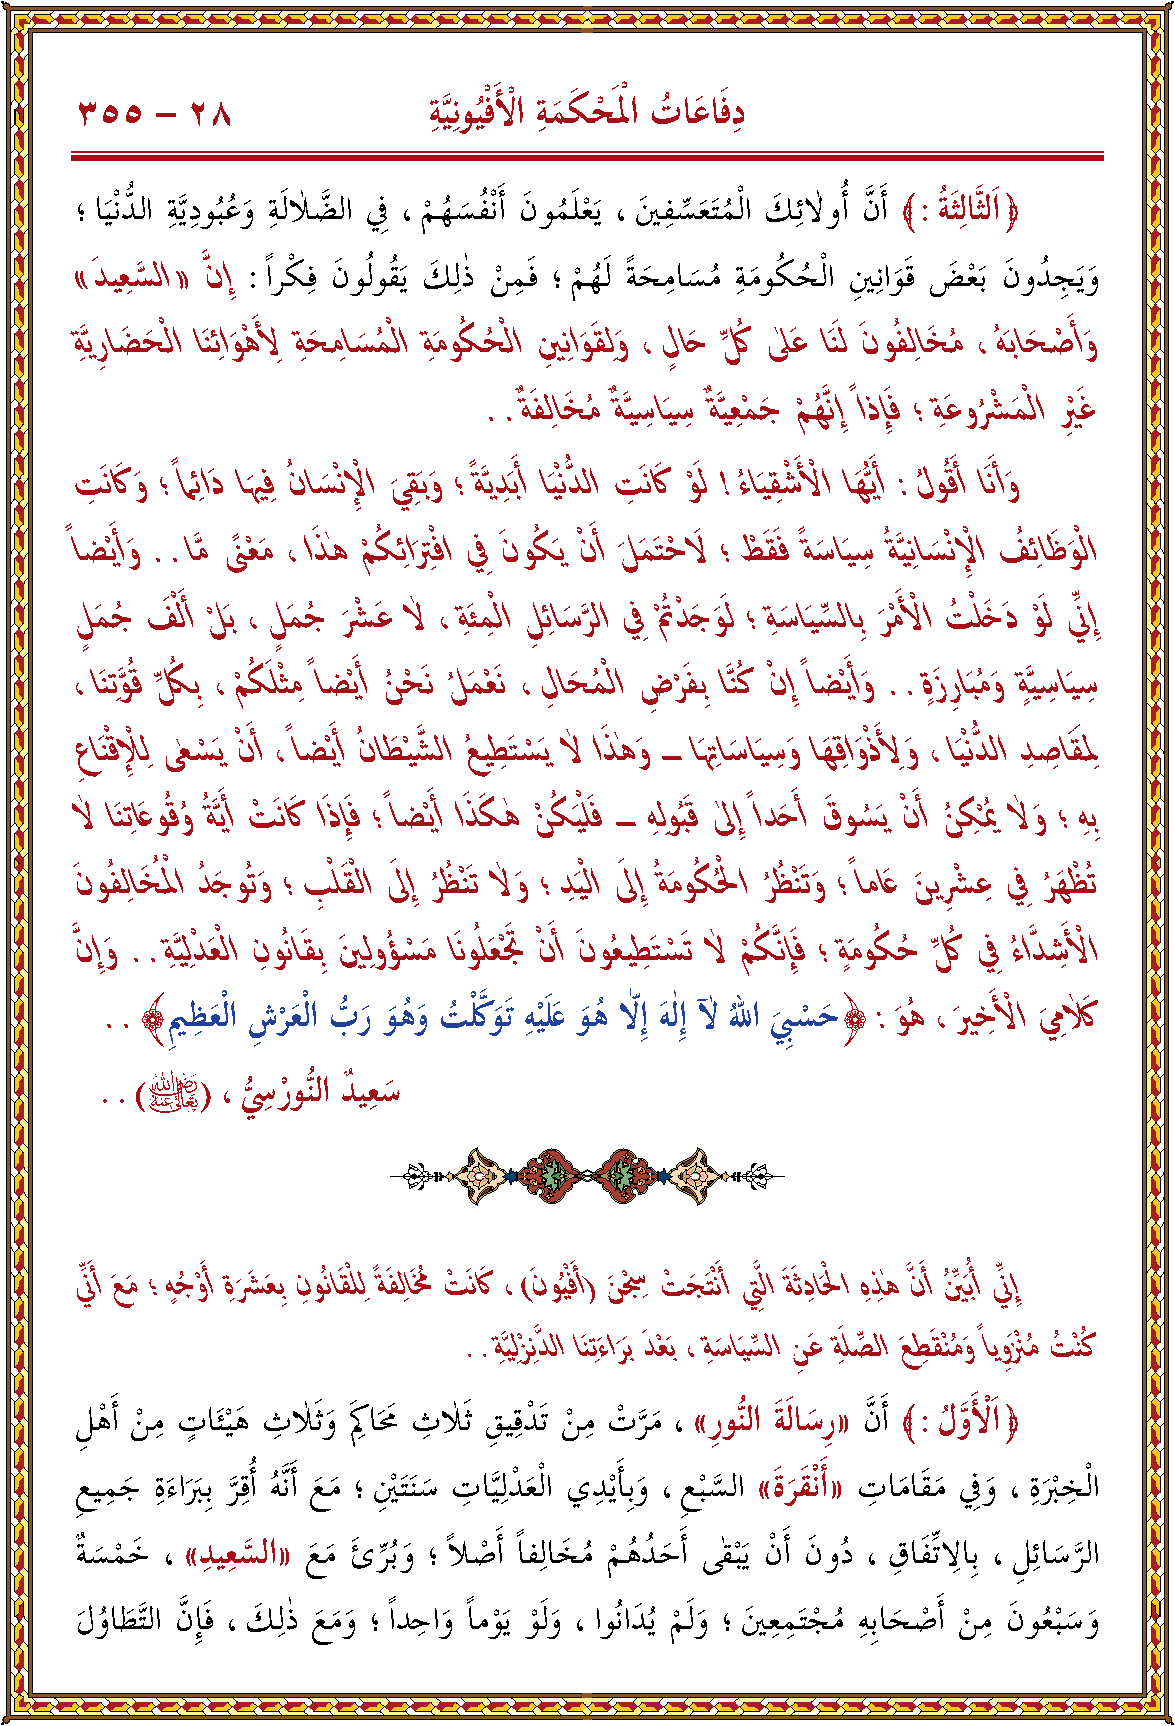 دِفَاعَاتُ الْمَحْكَمَةِ الْأَفْيُونِيَّةِ
٢٨ – ٣٥٥
﴿ اَلثَّالِثَةُ : ﴾ أَنَّ أُولٰئِكَ الْمُتَعَسِّفِينَ ، يَعْلَمُونَ أَنْفُسَهُمْ ، فِي الضَّلَالَةِ وَعُبُودِيَّةِ الدُّنْيَا ؛
وَيَجِدُونَ بَعْضَ قَوَانِينِ الْحُكُومَةِ مُسَامِحَةً لَهُمْ ؛ فَمِنْ ذٰلِكَ يَقُولُونَ فِكْراً : إِنَّ «السَّعِيدَ»
وَأَصْحَابَهُ ، مُخَالِفُونَ لَنَا عَلٰى كُلِّ حَالٍ ، وَلِقَوَانِينِ الْحُكُومَةِ الْمُسَامِحَةِ لِأَهْوَائِنَا الْحَضَارِيَّةِ
غَيْرِ الْمَشْرُوعَةِ ؛ فَإِذاً إِنَّهُمْ جَمْعِيَّةٌ سِيَاسِيَّةٌ مُخَالِفَةٌ . .
وَأَنَا أَقُولُ : أَيُّهَا الْأَشْقِيَاءُ ! لَوْ كَانَتِ الدُّنْيَا أَبَدِيَّةً ؛ وَبَقِيَ الْإِنْسَانُ فِيهَا دَائِماً ؛ وَكَانَتِ
الْوَظَائِفُ الْإِنْسَانِيَّةُ سِيَاسَةً فَقَطْ ؛ لَاحْتَمَلَ أَنْ يَكُونَ فِي افْتِرَائِكُمْ هٰذَا ، مَعْنًى مَّا . . وَأَيْضاً
إِنِّي لَوْ دَخَلْتُ الْأَمْرَ بِالسِّيَاسَةِ ؛ لَوَجَدْتُمْ فِي الرَّسَائِلِ الْمِئَةِ ، لَا عَشْرَ جُمَلٍ ، بَلْ أَلْفَ جُمَلٍ
سِيَاسِيَّةٍ وَمُبَارِزَةٍ . . وَأَيْضاً إِنْ كُنَّا بِفَرْضِ الْمُحَالِ ، نَعْمَلُ نَحْنُ أَيْضاً مِثْلَكُمْ ، بِكُلِّ قُوَّتِنَا ،
لِمَقَاصِدِ الدُّنْيَا ، وَلِأَذْوَاقِهَا وَسِيَاسَاتِهَا ــ وَهٰذَا لَا يَسْتَطِيعُ الشَّيْطَانُ أَيْضاً ، أَنْ يَسْعٰى لِلْإِقْنَاعِ
بِهِ ؛ وَلَا يُمْكِنُ أَنْ يَسُوقَ أَحَداً إِلٰى قَبُولِهِ ــ فَلْيَكُنْ هٰكَذَا أَيْضاً ؛ فَإِذَا كَانَتْ أَيَّةُ وُقُوعَاتِنَا لَا
تُظْهَرُ فِي عِشْرِينَ عَاماً ؛ وَتَنْظُرُ الْحُكُومَةُ إِلَى الْيَدِ ؛ وَلَا تَنْظُرُ إِلَى الْقَلْبِ ؛ وَتُوجَدُ الْمُخَالِفُونَ
الْأَشِدَّاءُ فِي كُلِّ حُكُومَةٍ ؛ فَإِنَّكُمْ لَا تَسْتَطِيعُونَ أَنْ تَجْعَلُونَا مَسْؤُولِينَ بِقَانُونِ الْعَدْلِيَّةِ . . وَإِنَّ
كَلَامِيَ الْأَخِيرَ ، هُوَ : ﴿حَسْبِيَ اللّٰهُ لَآ إِلٰهَ إِلَّا هُوَ عَلَيْهِ تَوَكَّلْتُ وَهُوَ رَبُّ الْعَرْشِ الْعَظِيمِ﴾ . .
سَعِيدٌ النُّورْسِيُّ ، (رضي الله تعالى عنه) . .
إِنِّي أُبَيِّنُ أَنَّ هٰذِهِ الْحَادِثَةَ الَّتِي أَنْتَجَتْ سِجْنَ (أَفْيُونَ) ، كَانَتْ مُخَالِفَةً لِلْقَانُونِ بِعَشَرَةِ أَوْجُهٍ ؛ مَعَ أَنِّي
كُنْتُ مُنْزَوِياً وَمُنْقَطِعَ الصِّلَةِ عَنِ السِّيَاسَةِ ، بَعْدَ بَرَاءَتِنَا الدَّنِزْلِيَّةِ . .
﴿ اَلْأَوَّلُ : ﴾ أَنَّ «رِسَالَةَ النُّورِ» ، مَرَّتْ مِنْ تَدْقِيقِ ثَلَاثِ مَحَاكِمَ وَثَلَاثِ هَيْئَاتٍ مِنْ أَهْلِ
الْخِبْرَةِ ، وَفِي مَقَامَاتِ «أَنْقَرَةَ» السَّبْعِ ، وَبِأَيْدِي الْعَدْلِيَّاتِ سَنَتَيْنِ ؛ مَعَ أَنَّهُ أُقِرَّ بِبَرَاءَةِ جَمِيعِ
الرَّسَائِلِ ، بِالِاتِّفَاقِ ، دُونَ أَنْ يَبْقٰى أَحَدُهُمْ مُخَالِفاً أَصْلاً ؛ وَبُرِّئَ مَعَ «السَّعِيدِ» ، خَمْسَةٌ
وَسَبْعُونَ مِنْ أَصْحَابِهِ مُجْتَمِعِينَ ؛ وَلَمْ يُدَانُوا ، وَلَوْ يَوْماً وَاحِداً ؛ وَمَعَ ذٰلِكَ ، فَإِنَّ التَّطَاوُلَ